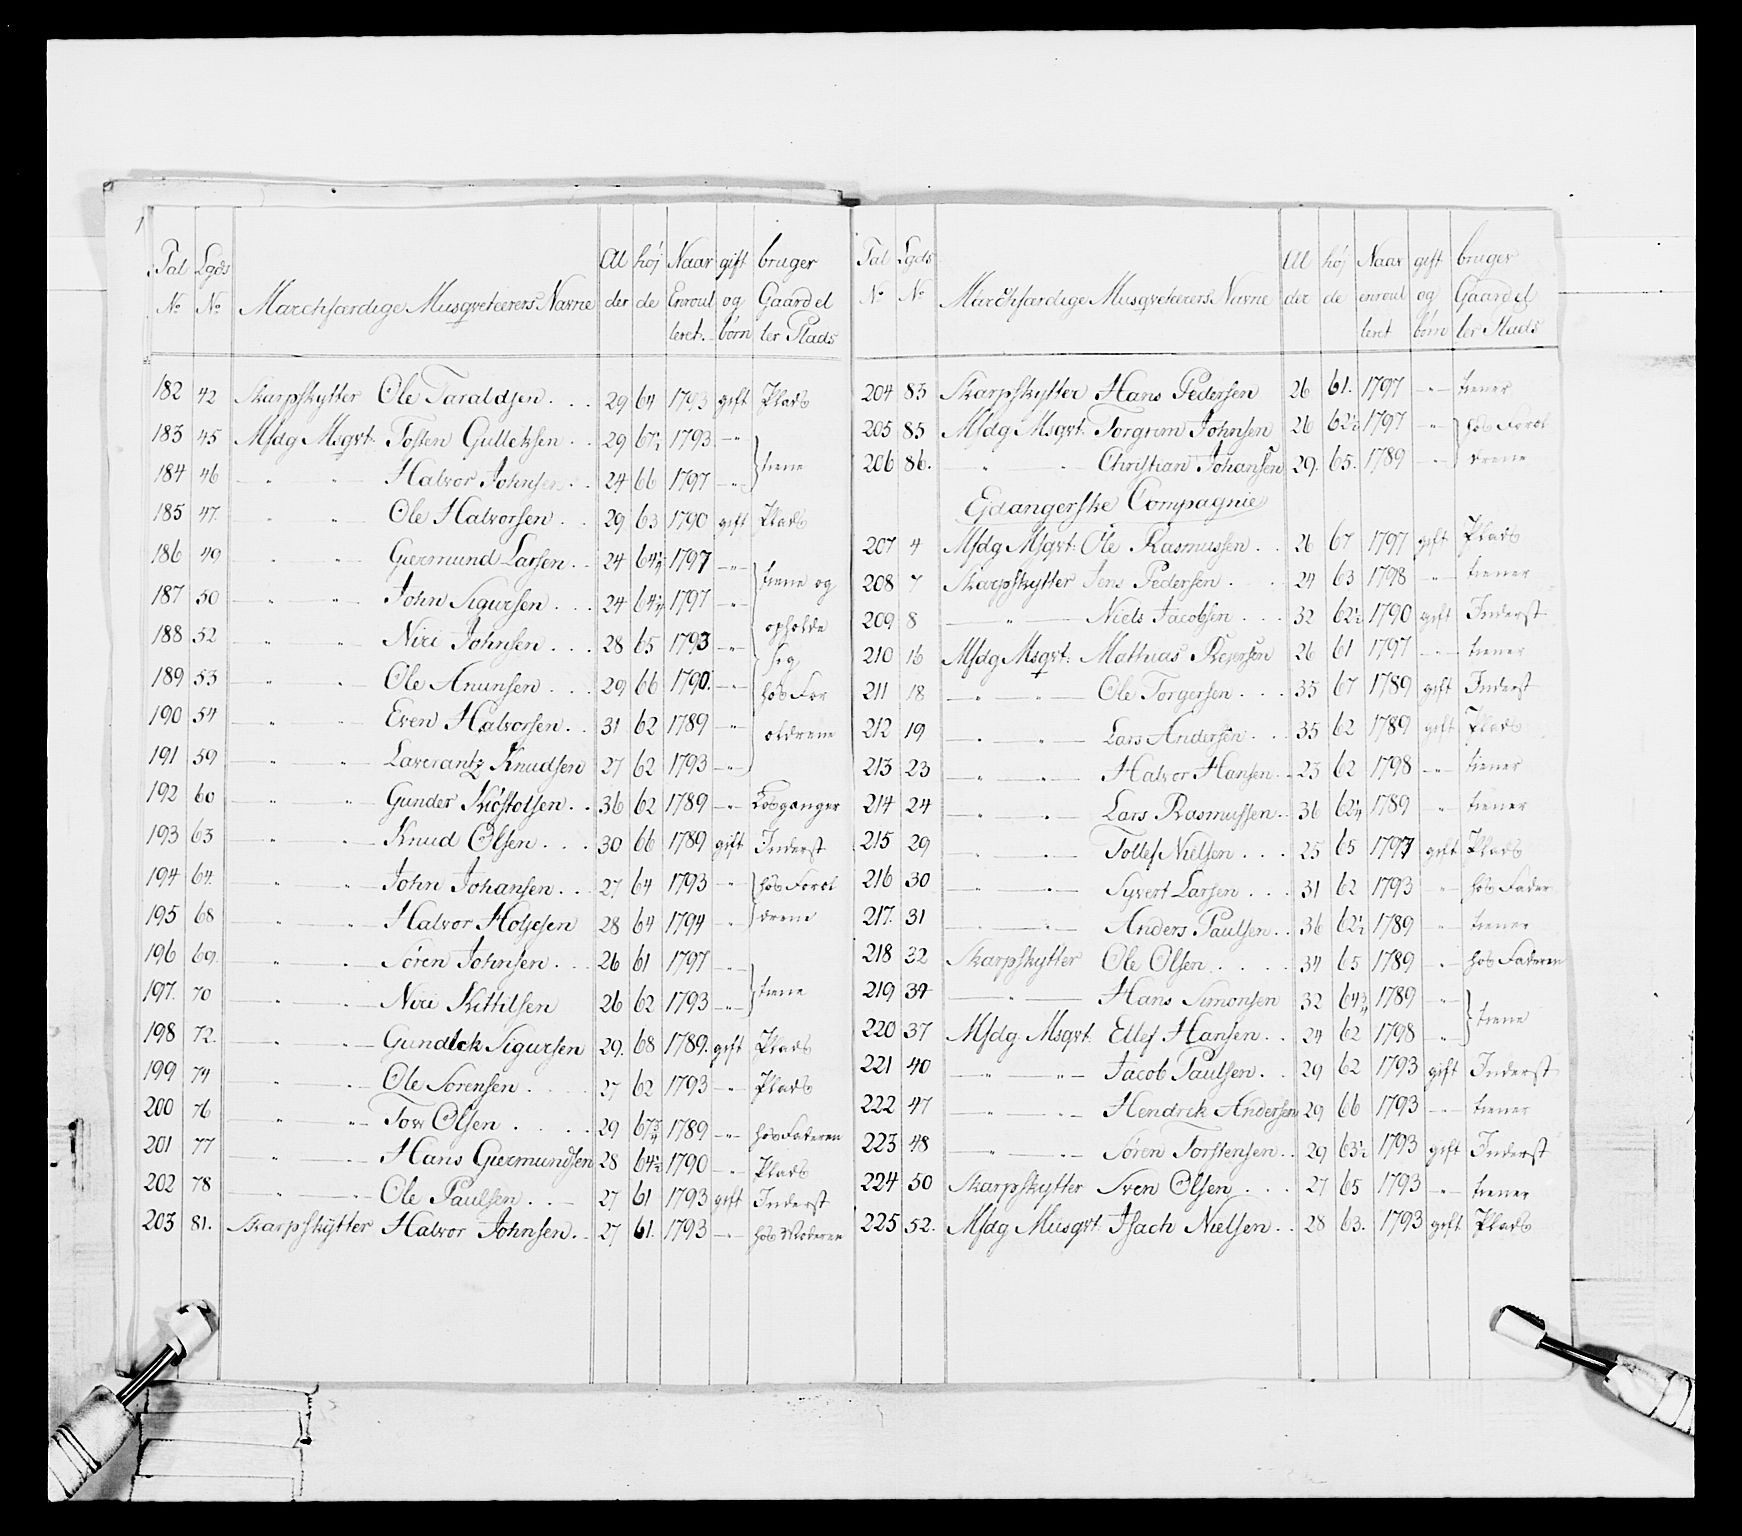 Tal Lgds Al høj Naar gift bruger
No No Marchfærdige Musqveteerers Navne der de Enroul og Gaard el
leret. børn ler Plads
182 42 Skarpskytter Ole Taraldsen 29 64 1793 gift Plads
183 45 Msdg Msqvt. Tosten Gulleksen 29 67½ 1793 -"-
184 46 " " Halvor Johnsen 24 66 1797 -"- } tiene
185 47. " " Ole Halvorsen 29 63 1790 gift Plads
186 49 " " Giermund Larsen 24 64¼ 1797 -"-
187 50 " " John Sigursen 24 64¼ 1797 -"- } tiene og
188 52 " " Niri Johnsen 28 65 1793 -"- opholde sig
189 53 " " Ole Anunsen 29 66 1790. -"- hos For
190 54 " " Even Halvorsen 31 62 1789 -"- ældrene
191 59 " " Laverantz Knudsen 27 62 1793 -"-
192 60 " " Gunder Kiøstolsen 36 62 1789 -"- Løsgænger
193 63 " " Knud Olsen 30 66 1789 gift Inderst
194 64. " " John Johansen 27. 64 1793 -"- } hos Foræl
195 68 " " Halvor Holjesen 28 64 1794 -"- drene
196 69. " " Søren Johnsen 26 61 1797 -"-
197. 70 " " Niri Kittilsen 26 62 1793 -"- } tiene
198 72. " " Gundlek Sigursen 29. 68 1789. gift Plads
199 74 " " Ole Sørensen 27 62 1793 -"- Plads
200 76 " " Tow Olsen 29 67¾ 1789 -"- hos Faderen
201 77 " " Hans Giermundsen 28 64½ 1790 -"- Plads
202 78 " " Ole Paulsen 27 61 1793 gift Inderst
203 81. Skarpskytter Halvor Johnsen 27 61. 1793 -"- hos Moderen
Tal Lgds Al høj Naar gift bruger
No No Marchfærdige Musqveteerers Navne der de enroul og Gaard el
leret børn ler Plads
204 83 Skarpskytter Hans Pedersen 26 61. 1797 -"- tiener
205 85 Msdg Msqvt. Torgrim Johnsen 26 62½ 1797 -"- } hos Foræl
206 86. " " Christian Johansen 29. 65. 1789 -"- drene
Ejdangerske Compagnie
207 4 Msdg Msqvt: Ole Rasmussen 26 67 1797 gift Plads
208 7 Skarpskytter Jens Pedersen 24 63 1798 -"- tiener
209 8 " Niels Jacobsen 32 62½ 1790 gift Inderst
210 16 Msdg Msqvt: Mathias Rejersen 26 61 1797 -"- tiener
211 18 " " Ole Torgersen 35 67 1789 gift Inderst
212 19 " " Lars Andersen 35 62 1789 gift Plads
213 23 " " Halvor Hansen 23 62 1798 -"- tiener
214 24 " " Lars Rasmussen 36 62¼ 1789 " tiener
215 29 " " Tollef Nielsen 25 65 1797 gift Plads
216 30 " " Syvert Larsen 31 62 1793 " hos Fader
217. 31 " " Anders Paulsen 36 62½ 1789 " tiener
218 32 Skarpskytter Ole Olsen 34 65 1789 -"- hos Faderen
219 34 " Hans Simonsen 32 64¾ 1789 -"-
220 37 Msdg. Msqvt. Ellef Hansen 24 62 1798 -"- } tiene
221 40 " " Jacob Paulsen 29 62 1793 gift Inderst
222 47 " " Hendrek Andersen 29 66 1793 -"- tiener
223 48 " " Søren Torstensen 29 63½ 1793 gift Inderst
224 50 Skarpskytter Sven Olsen 27 65 1793 -"- tiener
225 52. Msdg Musqvt. Isach Nielsen 28 63. 1793 gift Plads